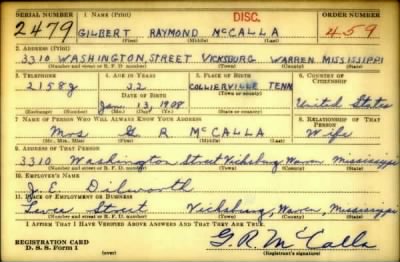 DISC.
SERIAL NUMBER 1. NAME (Print) ORDER NUMBER
2479 GILBERT RAYMOND McCALLA 459
(First) (Middle) (Last)
2. ADDRESS (Print)
3310 WASHINGTON STREET VICKSBURG WARREN MISSISSIPPI
(Number and street or R. F. D. number) (Town) (County) (State)
3. TELEPHONE 4. AGE IN YEARS 5. PLACE OF BIRTH 6. COUNTRY OF CITIZENSHIP
2158J 32 COLLIERVILLE TENN
DATE OF BIRTH (Town or county)
Jan. 13, 1908 United States
(Exchange) (Number) (Mo.) (Day) (Yr.) (State or country)
7. NAME OF PERSON WHO WILL ALWAYS KNOW YOUR ADDRESS 8. RELATIONSHIP OF THAT PERSON
Mrs G R McCALLA Wife
(Mr., Mrs., Miss) (First) (Middle) (Last)
9. ADDRESS OF THAT PERSON
3310 Washington Street Vicksburg Warren Mississippi
(Number and street or R. F. D. number) (Town) (County) (State)
10. EMPLOYER'S NAME
J. E. Dilworth
11. PLACE OF EMPLOYMENT OR BUSINESS
Levee Street Vicksburg, Warren, Mississippi
(Number and street or R. F. D. number) (Town) (County) (State)
I AFFIRM THAT I HAVE VERIFIED ABOVE ANSWERS AND THAT THEY ARE TRUE.
REGISTRATION CARD G. R. McCalla
D. S. S. Form 1 (over) (Registrant's signature)